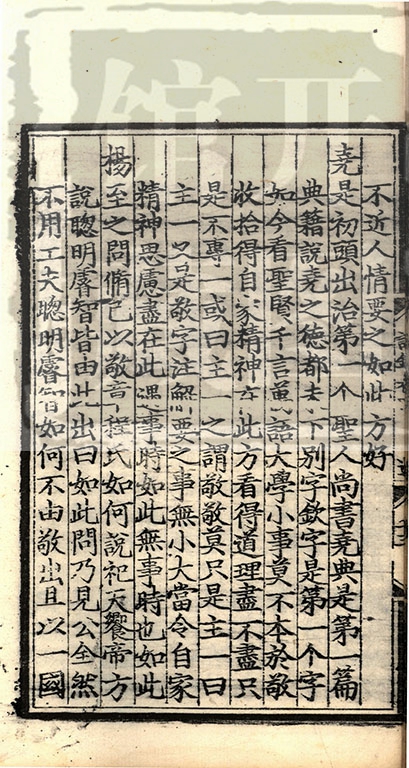 不近人情要之如此方好
堯是初頭出治第一个聖人尚書堯典是第一篇
典籍說堯之德都未下別字欽字是第一个字
如今看聖賢千言萬語大學小事莫不本於敬
收拾得自家精神在此方看得道理盡不盡只
是不專一或曰主一之謂敬敬莫只是主一曰
主一又是敬字注解要之事無小大當令自家
精神思慮盡在此遇事時如此無事時也如此
楊至之問脩已以敬章程氏如何說祀天饗帝方
說聰明睿智皆由此出曰如此問乃見公全然
不用工夫聰明睿智如何不由敬出且以一國